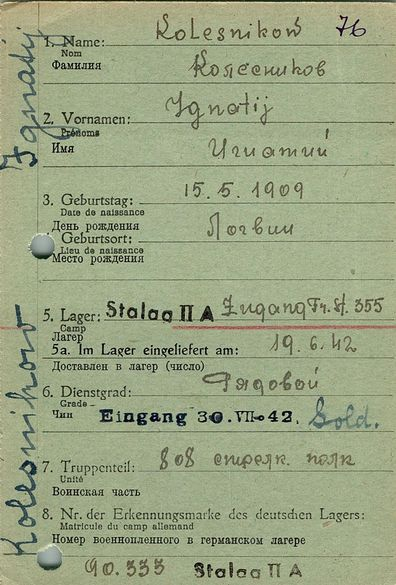 Kolesnikow 76
1. Name:
Nom
Фамилия Колесников
Ignatij
2. Vornamen:
Prénoms
Имя Игнатий
3. Geburtstag: 15. 5. 1909
Date de naissance
День рождения Логвин
Geburtsort:
Lieu de naissance
Место рождения
5. Lager: Stalag II A Zugang Fr. St. 355
Camp
Лагер
5a. Im Lager eingeliefert am: 19. 6. 42
Доставлен в лагер (число)
6. Dienstgrad: Рядовой
Grade
Чин Eingang 30. VII. 42. Sold.
7. Truppenteil: 808 стрелк. полк
Unité
Воинская часть
8. Nr. der Erkennungsmarke des deutschen Lagers:
Matricule du camp allemand
Номер военнопленного в германском лагере
90.333 Stalag II A
Kolesnikow Ignatij